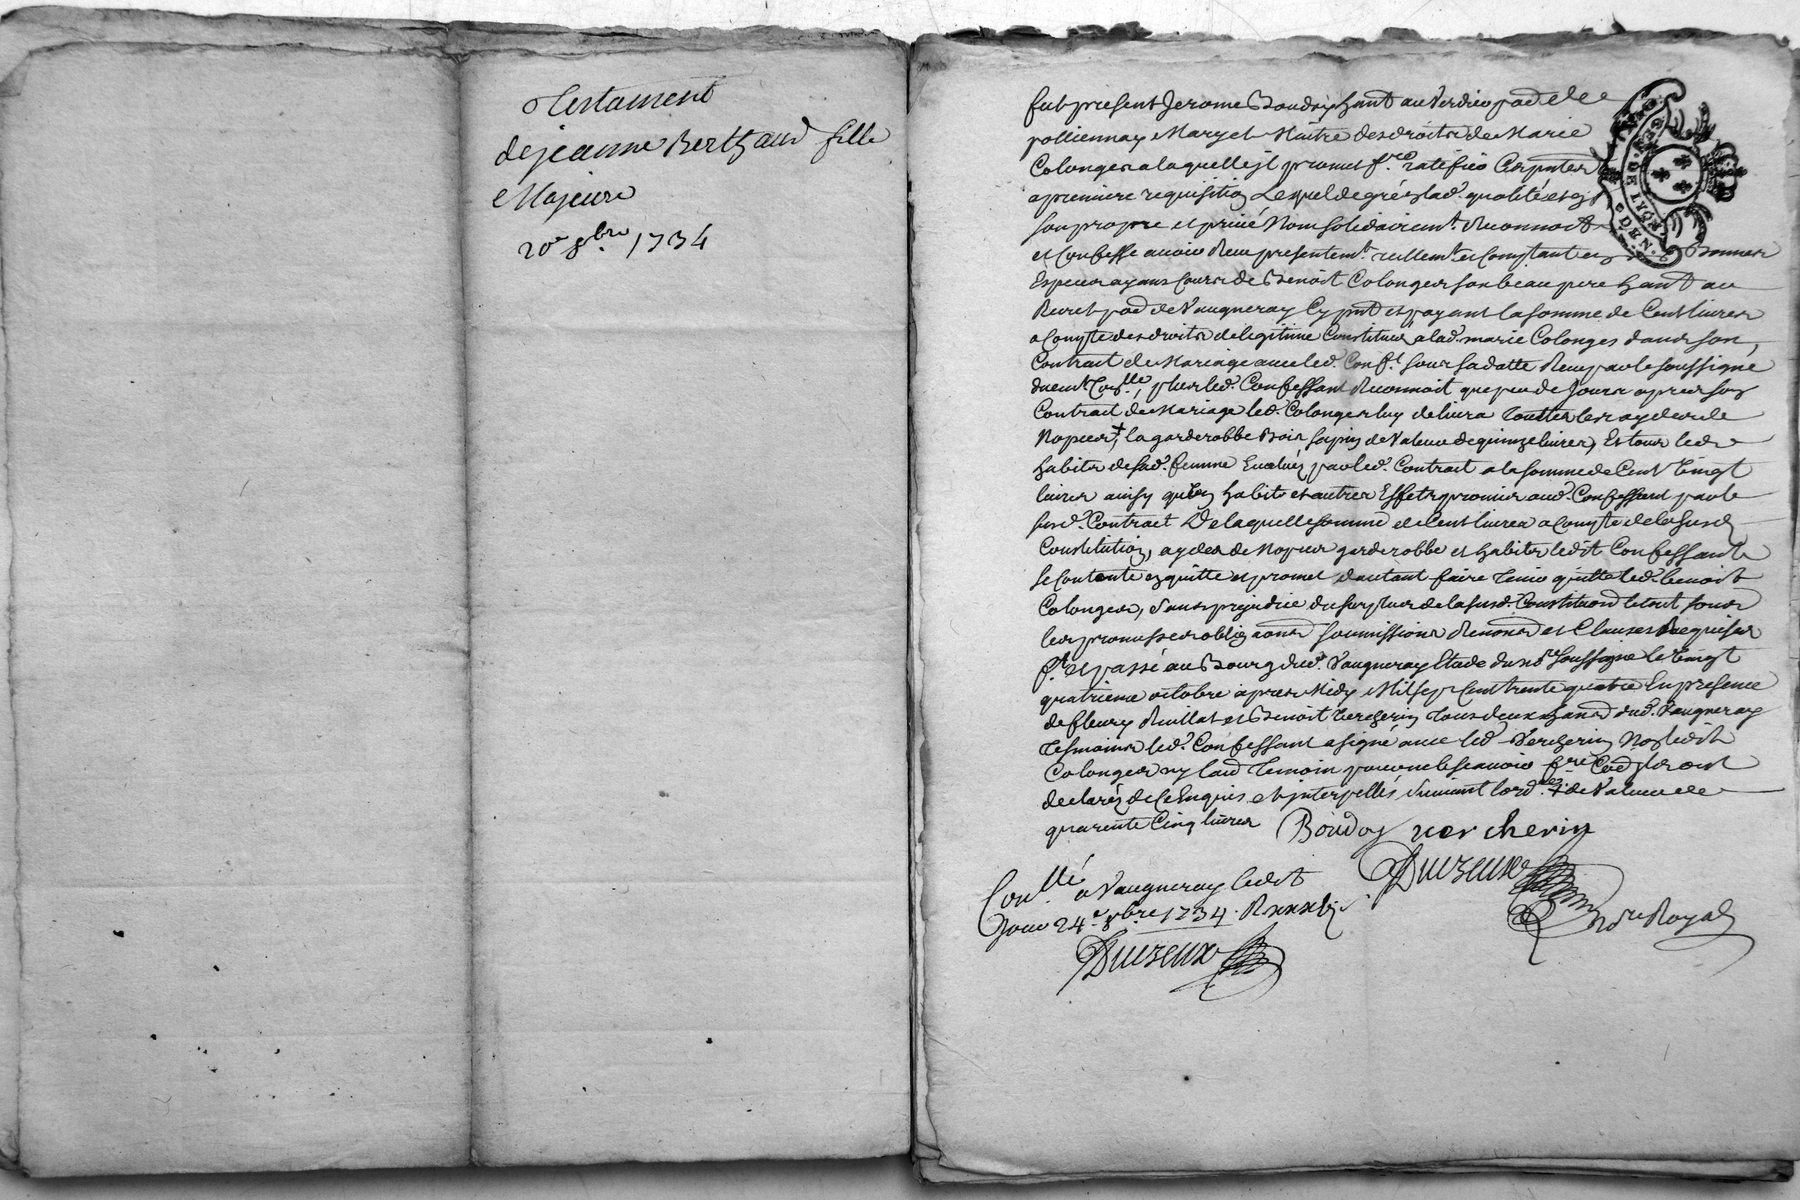 Testament
de jeanne Berthaud fille
Majeure
20e 8bre 1734
fut present Jerome Boudoy habnt au Verdier parr de
polliennay Mary et Maitre des droits de Marie
Colonges a laquelle jl promet fre ratifier Ces pntes
a premiere requisition Lequel de gré en lad. qualité et en
son propre et privé Nom solidairemt. Reconnoit
et Confesse avoir Reeu presentemt. reellemt. et Comptant en Bonnes
Especes ayans Cours de Benoit Colonges son beau pere habnt au
parr de Vaugneray Cy pnt et payant la somme de Cent livres
a Compte des droits de legitime Constitués a lad. marie Colonges dans son
Contrat de Mariage avec led. Conft. sous sa datte Receu par le soussigné
duemt. Conllé, plus led. Confessant Reconnoit que peu de Jours apres son
Contrat de Mariage led. Colonges luy delivra touttes les aydes de
Nopces, la garderobbe Bois sapin de Valeur de quinze livres, Et tous les
habits de sad. femme Evalués par led. Contrat a la somme de Cent vingt
livres ainsy que les habits et autres Effets promis aud. Confessant par le
susd. Contrat De laquelle somme de Cent livres a Compte de la susd.
Constitution, aydes de Nopces garderobbe et habits ledit Confessant
se Contente en quitte et promet d'autant faire tenir quitte led. benoit
Colonges, sans prejudice du surplus de la susd. Constituon le tout sous
les promesses obligaons soumissions Renonons et Clauses Requises
ft. et passé au Bourg dud. Vaugneray Etude du nore soussigné le vingt
quatrieme octobre apres Midy Mil sept Cent trente quatre En presence
de fleury et Benoit Vercherin tous deux habnds dud. Vaugneray
tesmoins led. Confessant a signé avec led. Vercherin Non ledit
Colonges ny laud temoin pour ne le scavoir fre Comme jls ont
declaré de Ce Enquis et jnterpellés suivant lord. + de Valeur de
quarente Cinq livres Boudoy ver cherin
Duizeux
Nore Royal
Conllé a Vaugneray ledit
Jour 24e 8bre 1734. R
Duizeux
GEN. DE